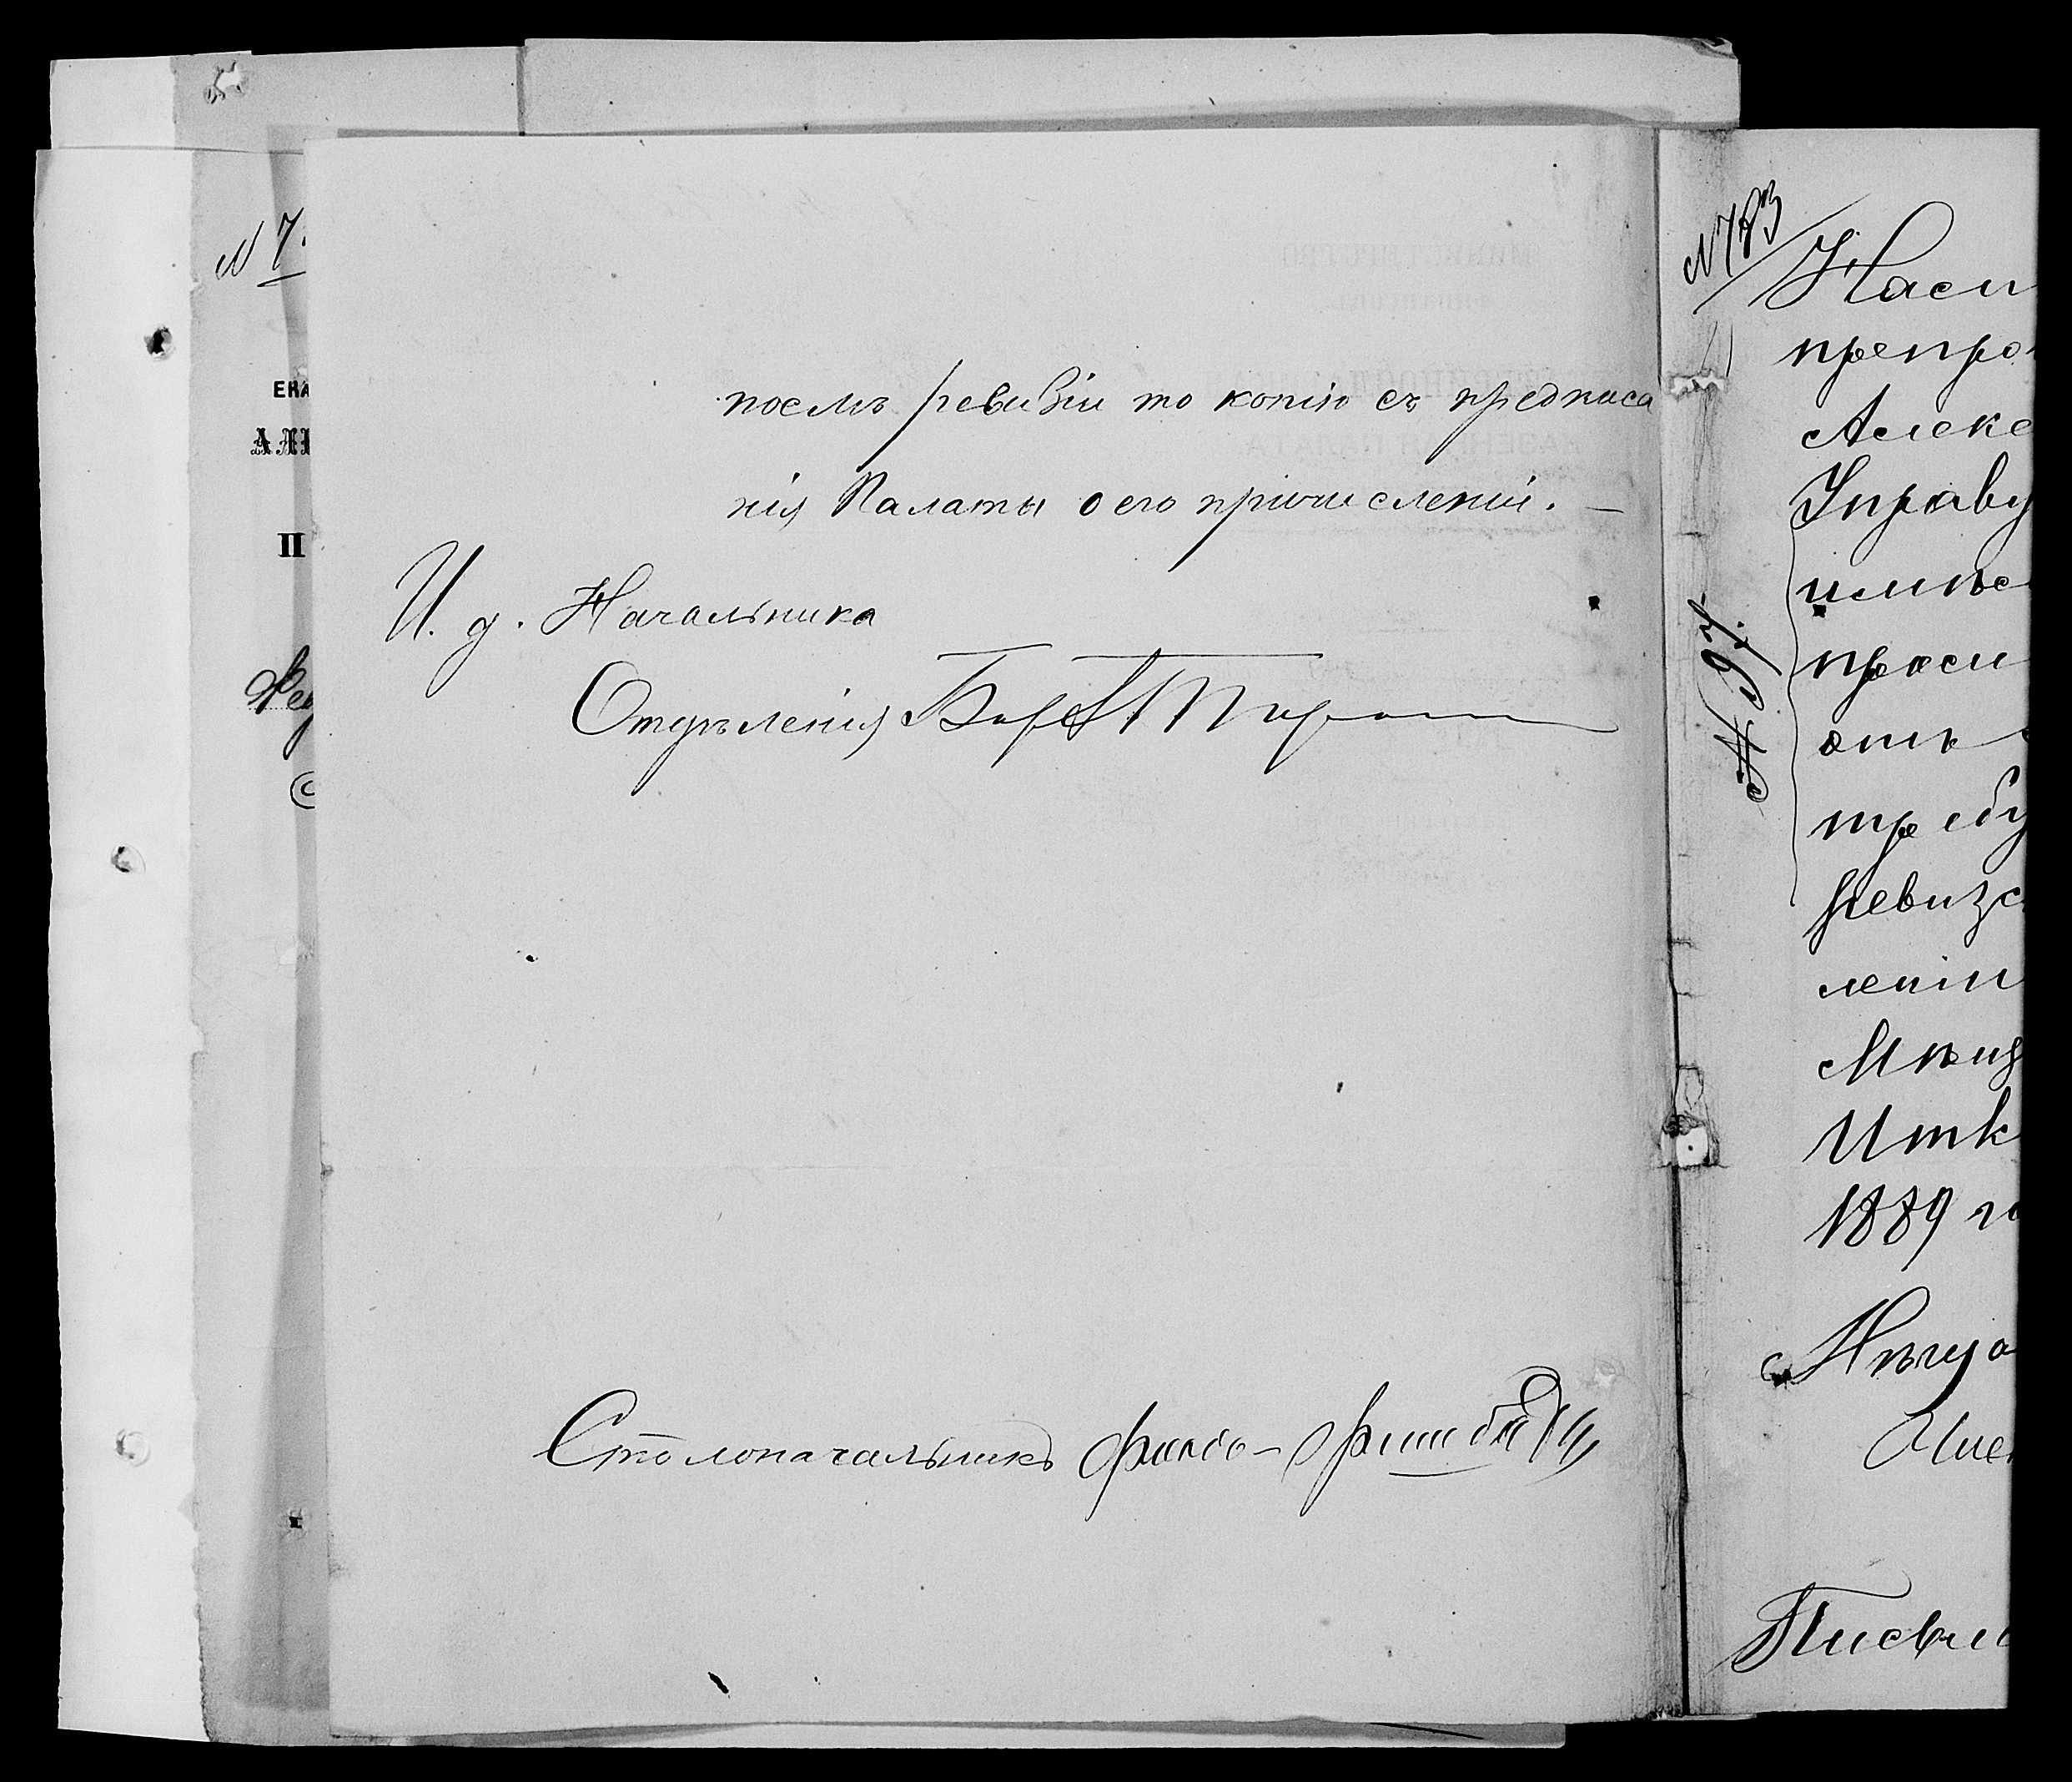 N 7
ЕКА
II
послѣ ревизіи то копію съ предписа
нія Палаты о его причисленіи. —
И. д. Начальника
Отдѣленія
Столоначальникъ
N 783
препро
Алекс
Управу
имѣе
проси
отъ
требу
ревизс
леніи
Мѣщ
Итк
1889 го
Письм